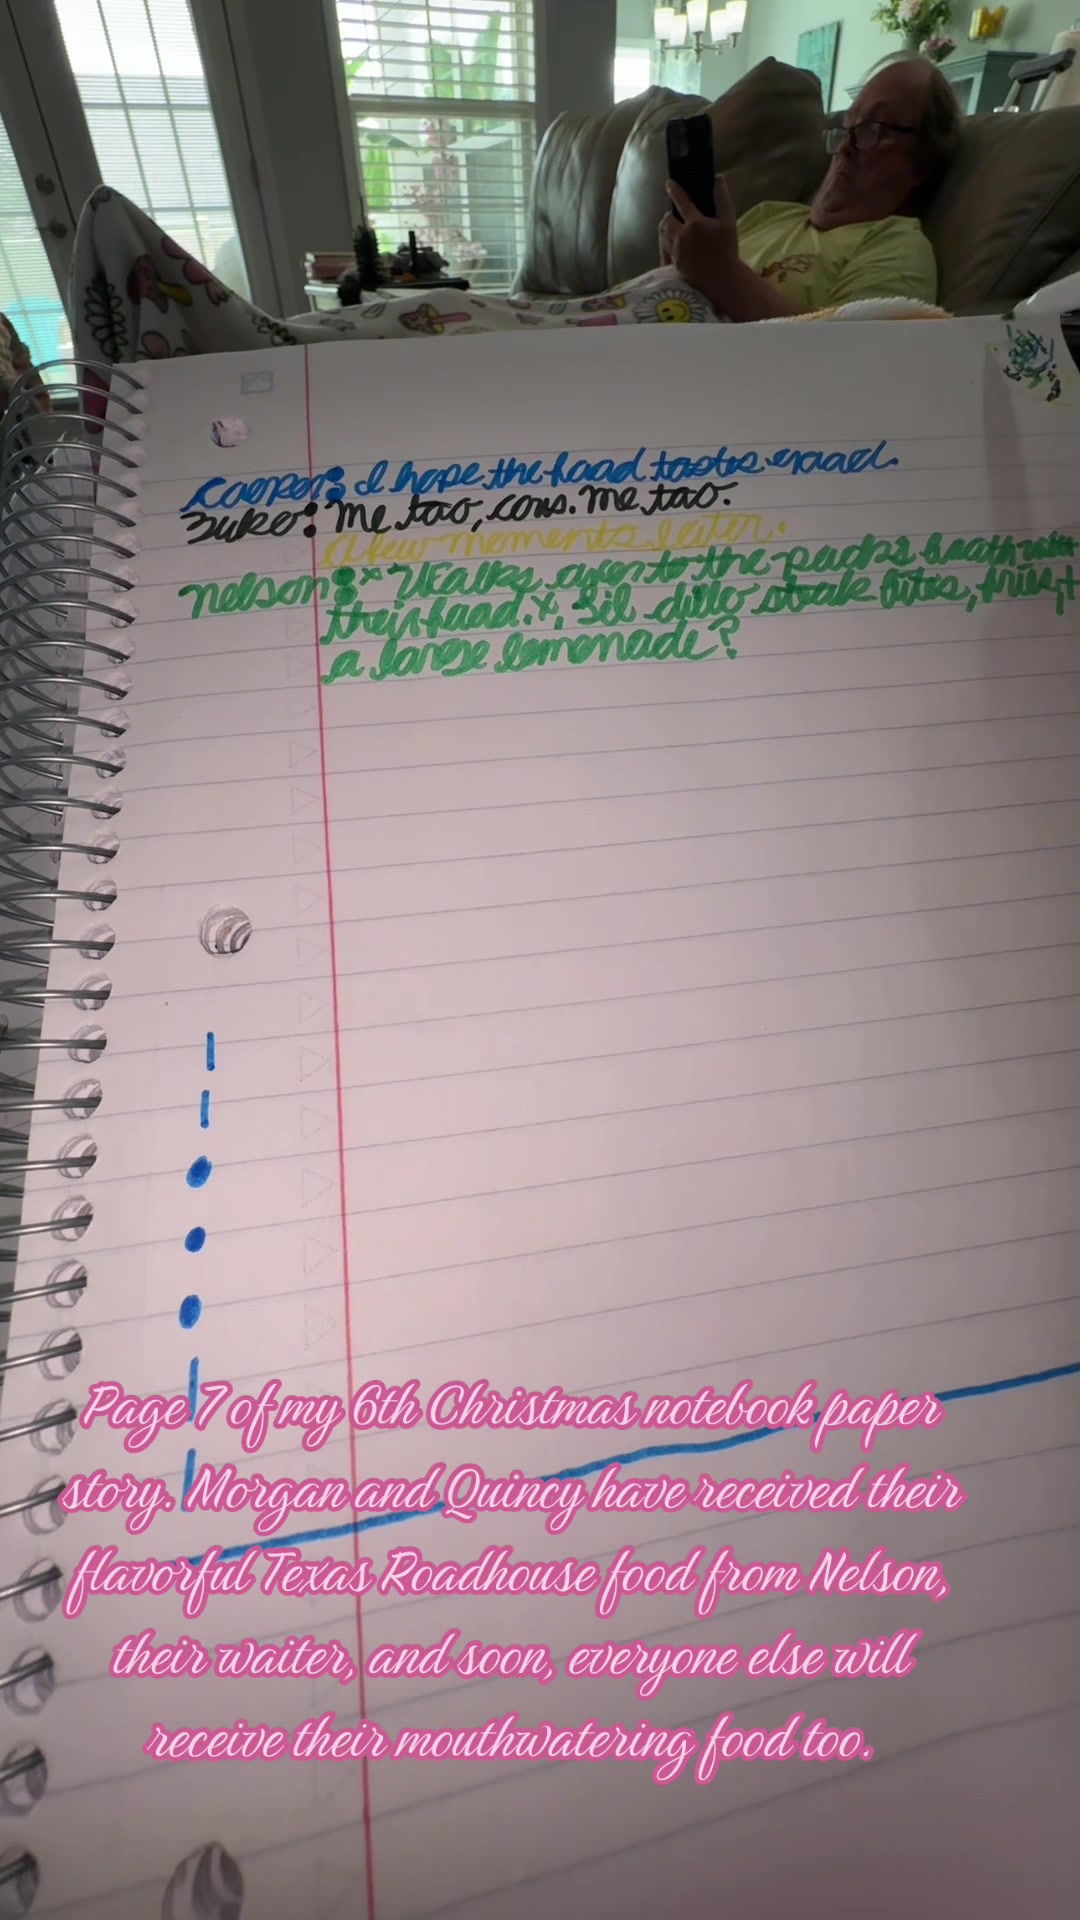 Casper: I hope the food tastes good.
Zuko: Me too, cous. Me too.
A few moments later.
Nelson: *Walks over to the pack's booth with
their food.*, Lil dillo steak bites, fries, +
a large lemonade?
Page 7 of my 6th Christmas notebook paper
story. Morgan and Quincy have received their
flavorful Texas Roadhouse food from Nelson,
their waiter, and soon, everyone else will
receive their mouthwatering food too.